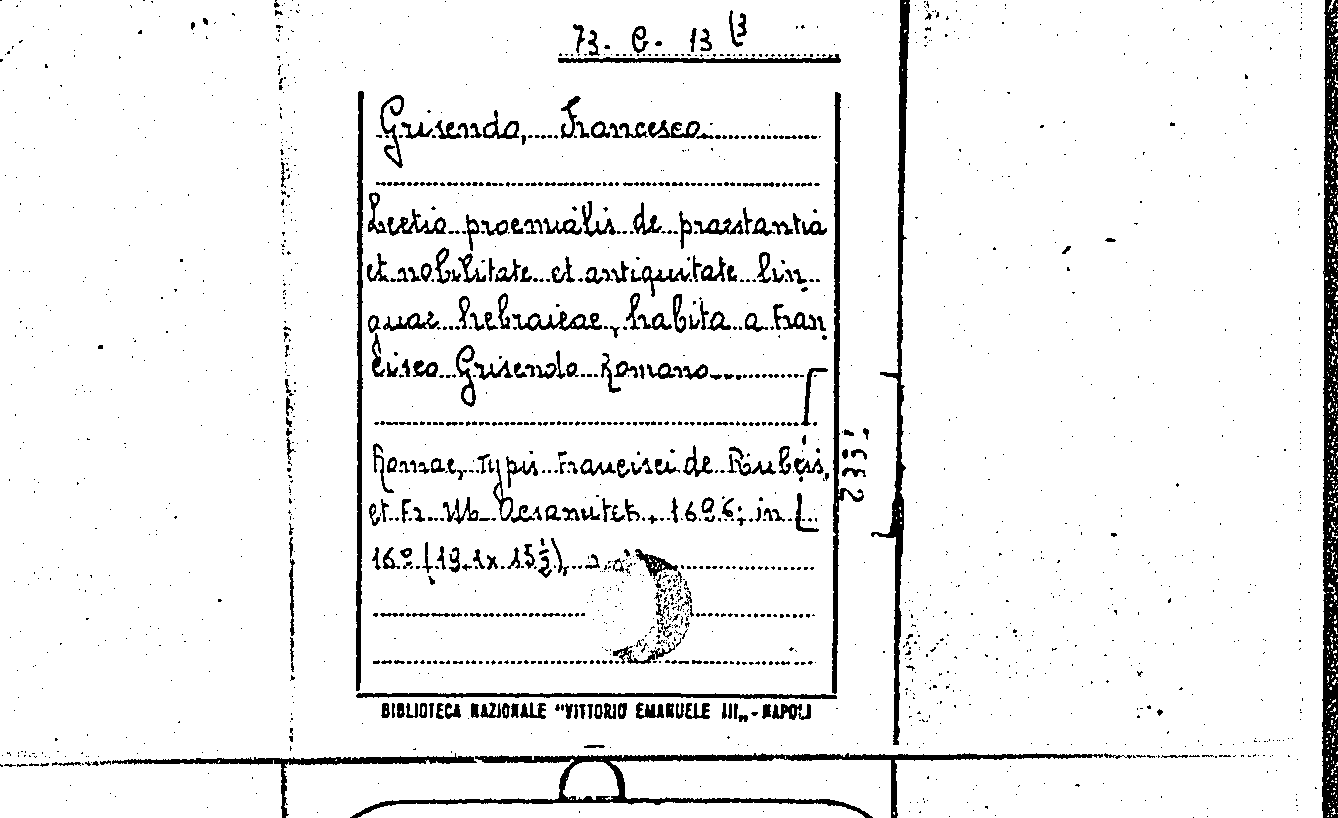 73. C. 13 (3
Grisendo, Francesco.
Lectio proemialis de praestantia
et nobilitate et antiquitate lin
guae hebraicae, habita a Fran
cisco Grisendo Romano...
Romae, Typis Francisci de Rubeis,
et Fr. M. 1696; in
16º (19.1x 15½).
BIBLIOTECA NAZIONALE "VITTORIO EMANUELE III„ - NAPOLI